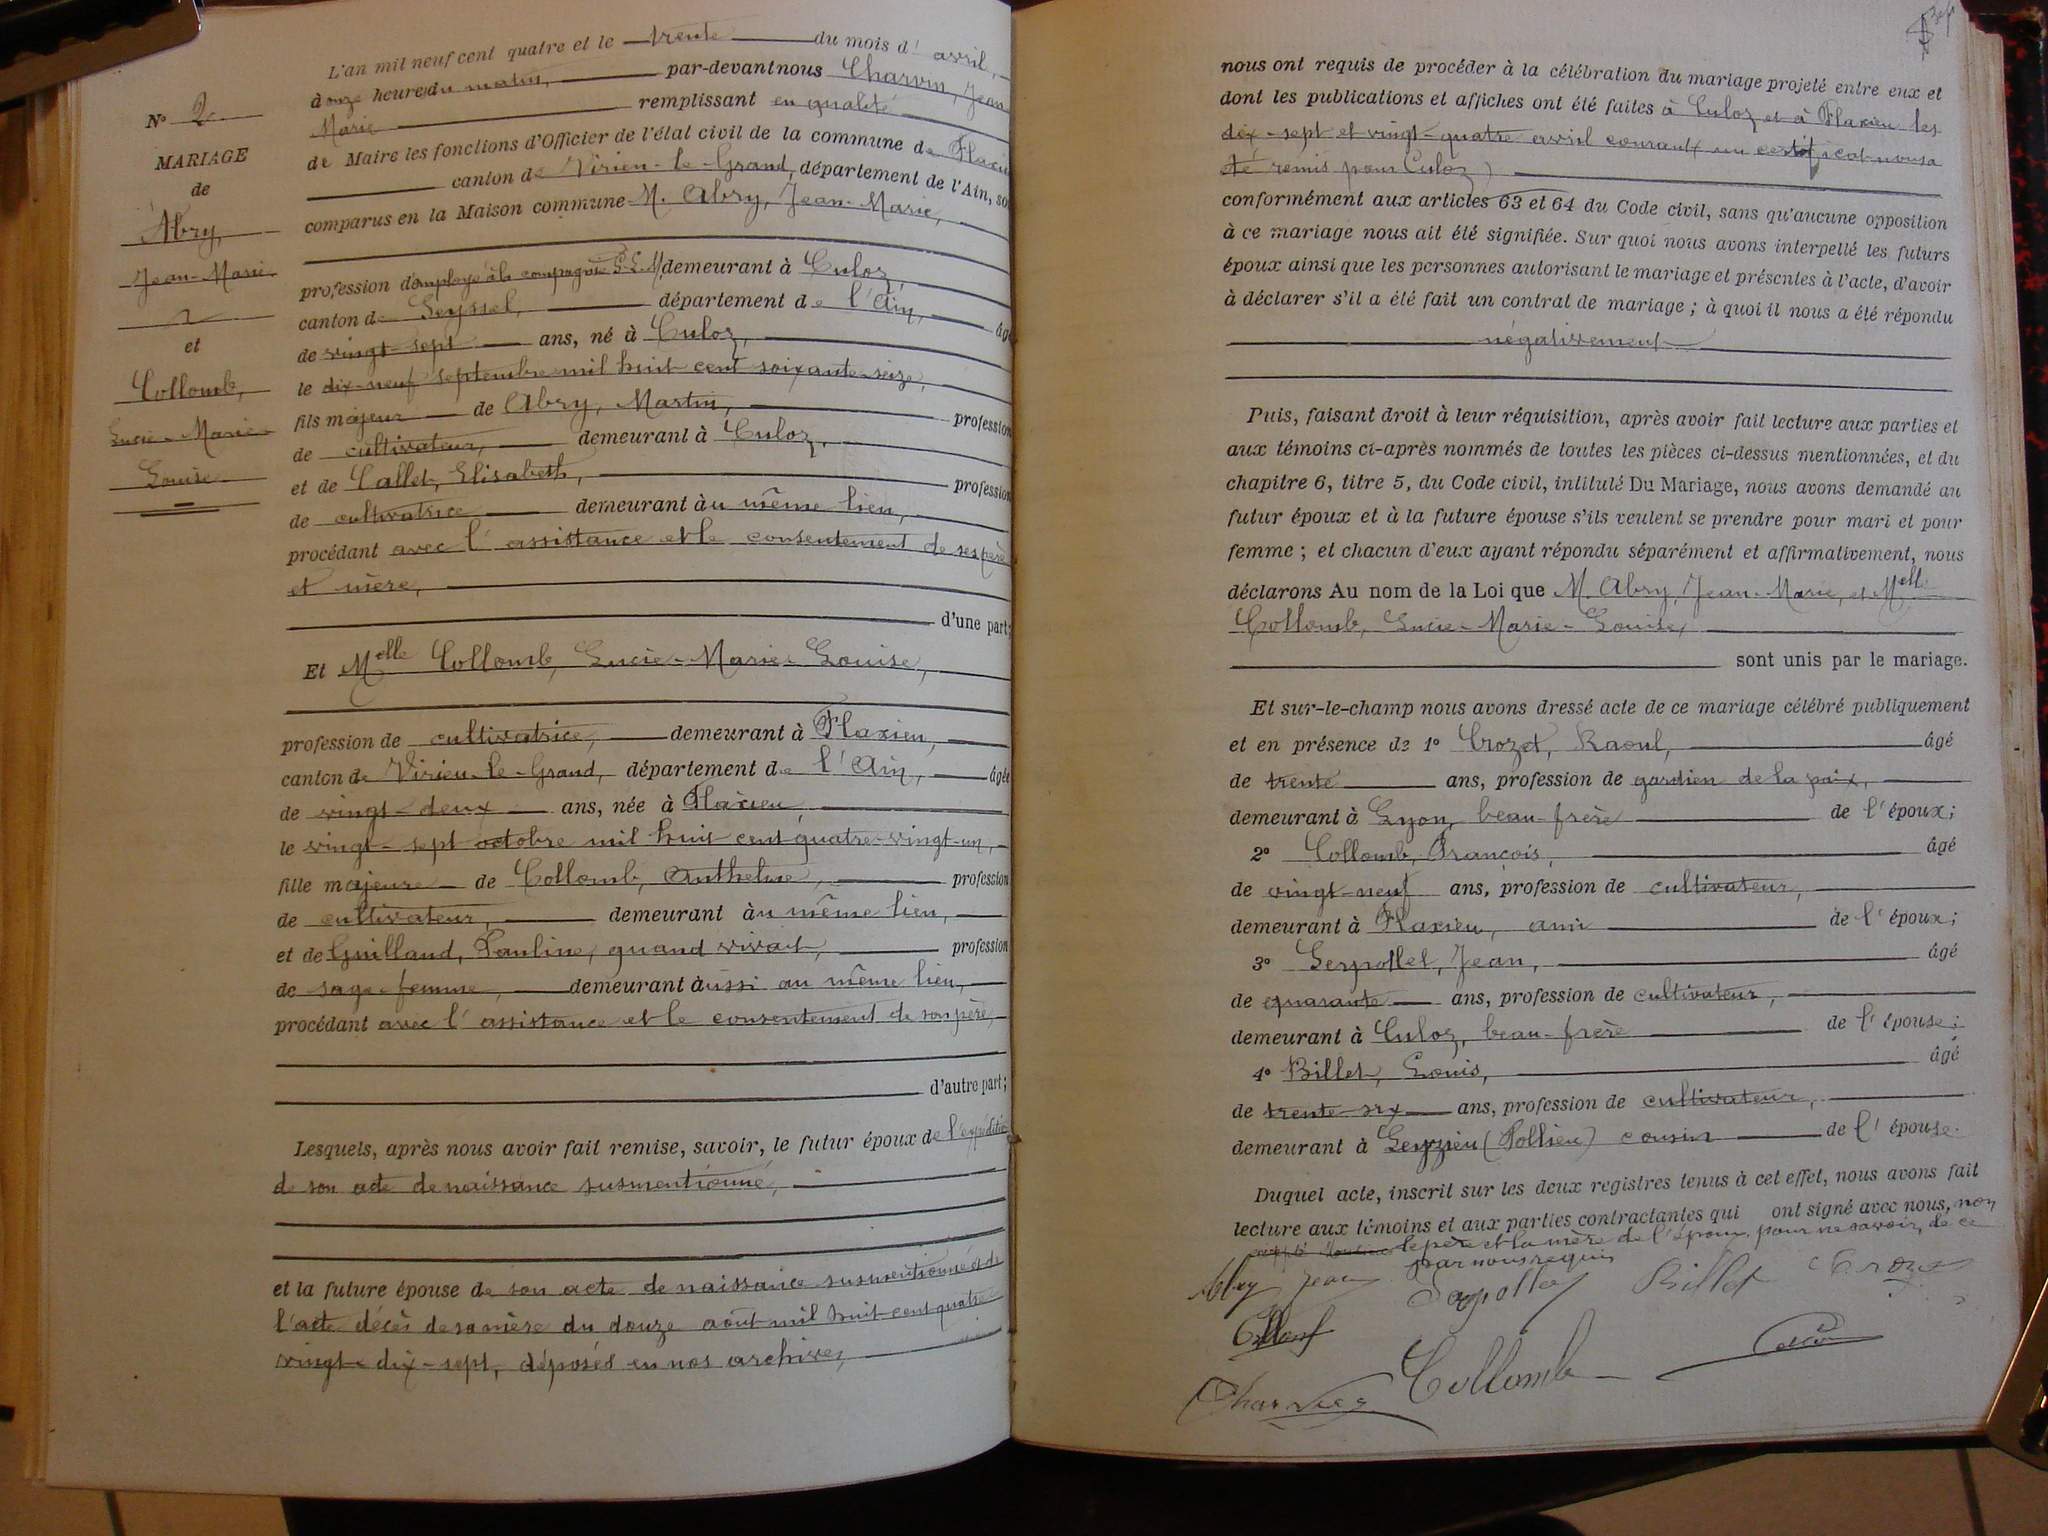 L'an mil neuf cent quatre et le trente du mois d'avril,
à onze heures du matin, par-devant nous Charvin, Jean
Marie remplissant en qualité
de Maire les fonctions d'Officier de l'état civil de la commune de Flaxieu
canton de Virieu-le-Grand, département de l'Ain, so
comparus en la Maison commune M. Abry, Jean-Marie,
profession d'employé à la compagnie P.L.M, demeurant à Culoz,
canton de Seyssel, département de l'Ain, âgé
de vingt-sept ans, né à Culoz,
le dix-neuf septembre mil huit cent soixante-seize,
fils majeur de Abry, Martin, profession
de cultivateur, demeurant à Culoz,
et de Callet, Elisabeth, profession
de cultivatrice demeurant au même lieu,
procédant avec l'assistance et le consentement de ses père
et mère,
d'une part;
Et Melle Collomb, Lucie-Marie-Louise,
profession de cultivatrice, demeurant à Flaxieu,
canton de Virieu-le-Grand, département de l'Ain, âgée
de vingt-deux ans, née à Flaxieu,
le vingt-sept octobre mil huit cent quatre-vingt-un,
fille majeure de Collomb, Anthelme, profession
de cultivateur, demeurant au même lieu,
et de Guilland, Pauline, quand vivait, profession
de sage-femme, demeurant aussi au même lieu,
procédant avec l'assistance et le consentement de son père,
d'autre part;
Lesquels, après nous avoir fait remise, savoir, le futur époux de l'expédition
de son acte de naissance susmentionné,
et la future épouse de son acte de naissance susmentionné et de
l'acte décès de sa mère du douze août mil huit cent quatre
vingt-dix-sept, déposés en nos archives,
N° 2
MARIAGE
de
Abry,
Jean-Marie
et
Collomb,
Lucie-Marie
Louise
nous ont requis de procéder à la célébration du mariage projeté entre eux et
dont les publications et affiches ont été faites à Culoz et à Flaxieu les
dix-sept et vingt-quatre avril courant (un certificat nous a
été remis pour Culoz)
conformément aux articles 63 et 64 du Code civil, sans qu'aucune opposition
à ce mariage nous ait été signifiée. Sur quoi nous avons interpellé les futurs
époux ainsi que les personnes autorisant le mariage et présentes à l'acte, d'avoir
à déclarer s'il a été fait un contrat de mariage ; à quoi il nous a été répondu
négativement
Puis, faisant droit à leur réquisition, après avoir fait lecture aux parties et
aux témoins ci-après nommés de toutes les pièces ci-dessus mentionnées, et du
chapitre 6, titre 5, du Code civil, intitulé Du Mariage, nous avons demandé au
futur époux et à la future épouse s'ils veulent se prendre pour mari et pour
femme ; et chacun d'eux ayant répondu séparément et affirmativement, nous
déclarons Au nom de la Loi que M. Abry, Jean-Marie, et Melle
Collomb, Lucie-Marie-Louise,
sont unis par le mariage.
Et sur-le-champ nous avons dressé acte de ce mariage célébré publiquement
et en présence de 1° Crozet, Raoul, âgé
de trente ans, profession de gardien de la paix,
demeurant à Lyon, beau-frère de l'époux;
2° Collomb, François, âgé
de vingt-neuf ans, profession de cultivateur,
demeurant à Flaxieu, ami de l'époux;
3° Serpollet, Jean, âgé
de quarante ans, profession de cultivateur,
demeurant à Culoz, beau-frère de l'épouse;
4° Billet, Louis, âgé
de trente-six ans, profession de cultivateur,
demeurant à Leyzieu (Pollieu) cousin de l'épouse.
Duquel acte, inscrit sur les deux registres tenus à cet effet, nous avons fait
lecture aux témoins et aux parties contractantes qui ont signé avec nous, non
le père et la mère de l'époux, pour ne savoir, de ce
par nous requis
Abry Jean Serpollet Billet Crozet
Collomb
Charvin Collomb